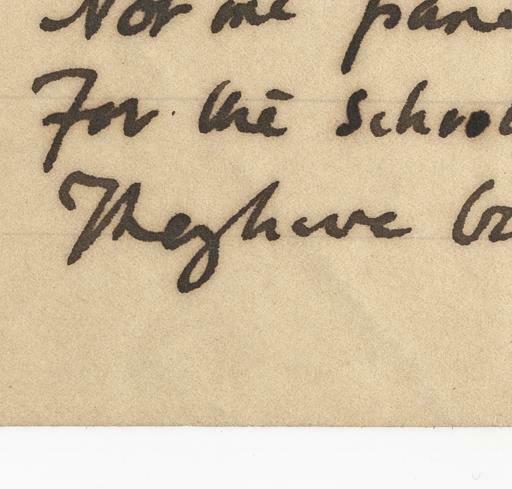 Not one pane
For the school
They have